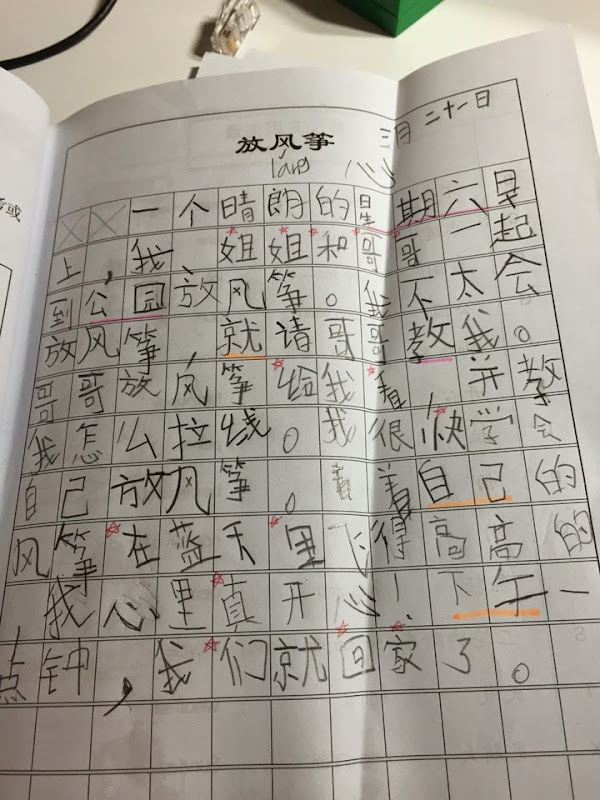 放风筝 三月二十一日
lǎng 心
一个晴朗的星期六早
上，我姐姐和哥哥一起
到公园放风筝。我不太会
放风筝，就请哥哥教我。
哥哥放风筝给我看 并教
我怎么拉线。我很快学会
自己放风筝。看着自己的
风筝在蓝天里飞得高高的
我心里真开心！下午一
点钟，我们就回家了。